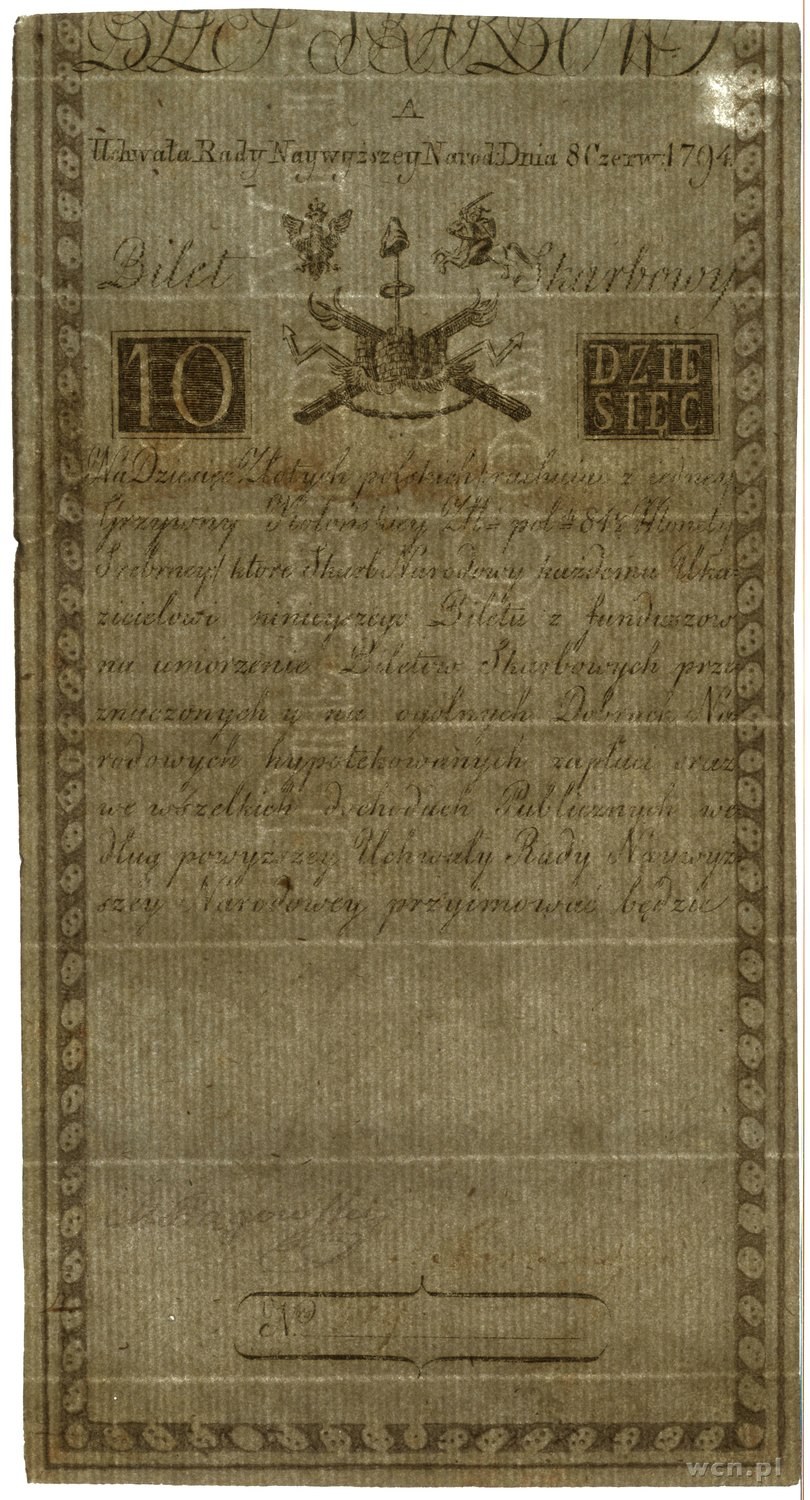 BILET SKARBOWY
A
Uchwała Rady Naywyższey Narod: Dnia 8 Czerw: 1794
Bilet Skarbowy
10 DZIE
SIĘĆ
Na Dziesięc Złotych polskich rachuiąc z iedney
Grzywny Kolońskiey Zł: pol: 84½ Monety
Srebrney/ ktore Skarb Narodowy każdemu Uka-
zicielowi ninieyszego Biletu z funduszow
na umorzenie Biletow Skarbowych prze
znaczonych y na ogolnych Dobrach Na
rodowych hypotekowanych zapłaci oraz
we wszelkich dochodach Publicznych we
dług powyższey Uchwały Rady Naywyż
szey Narodowey przyimować będzie
No
wcn.pl